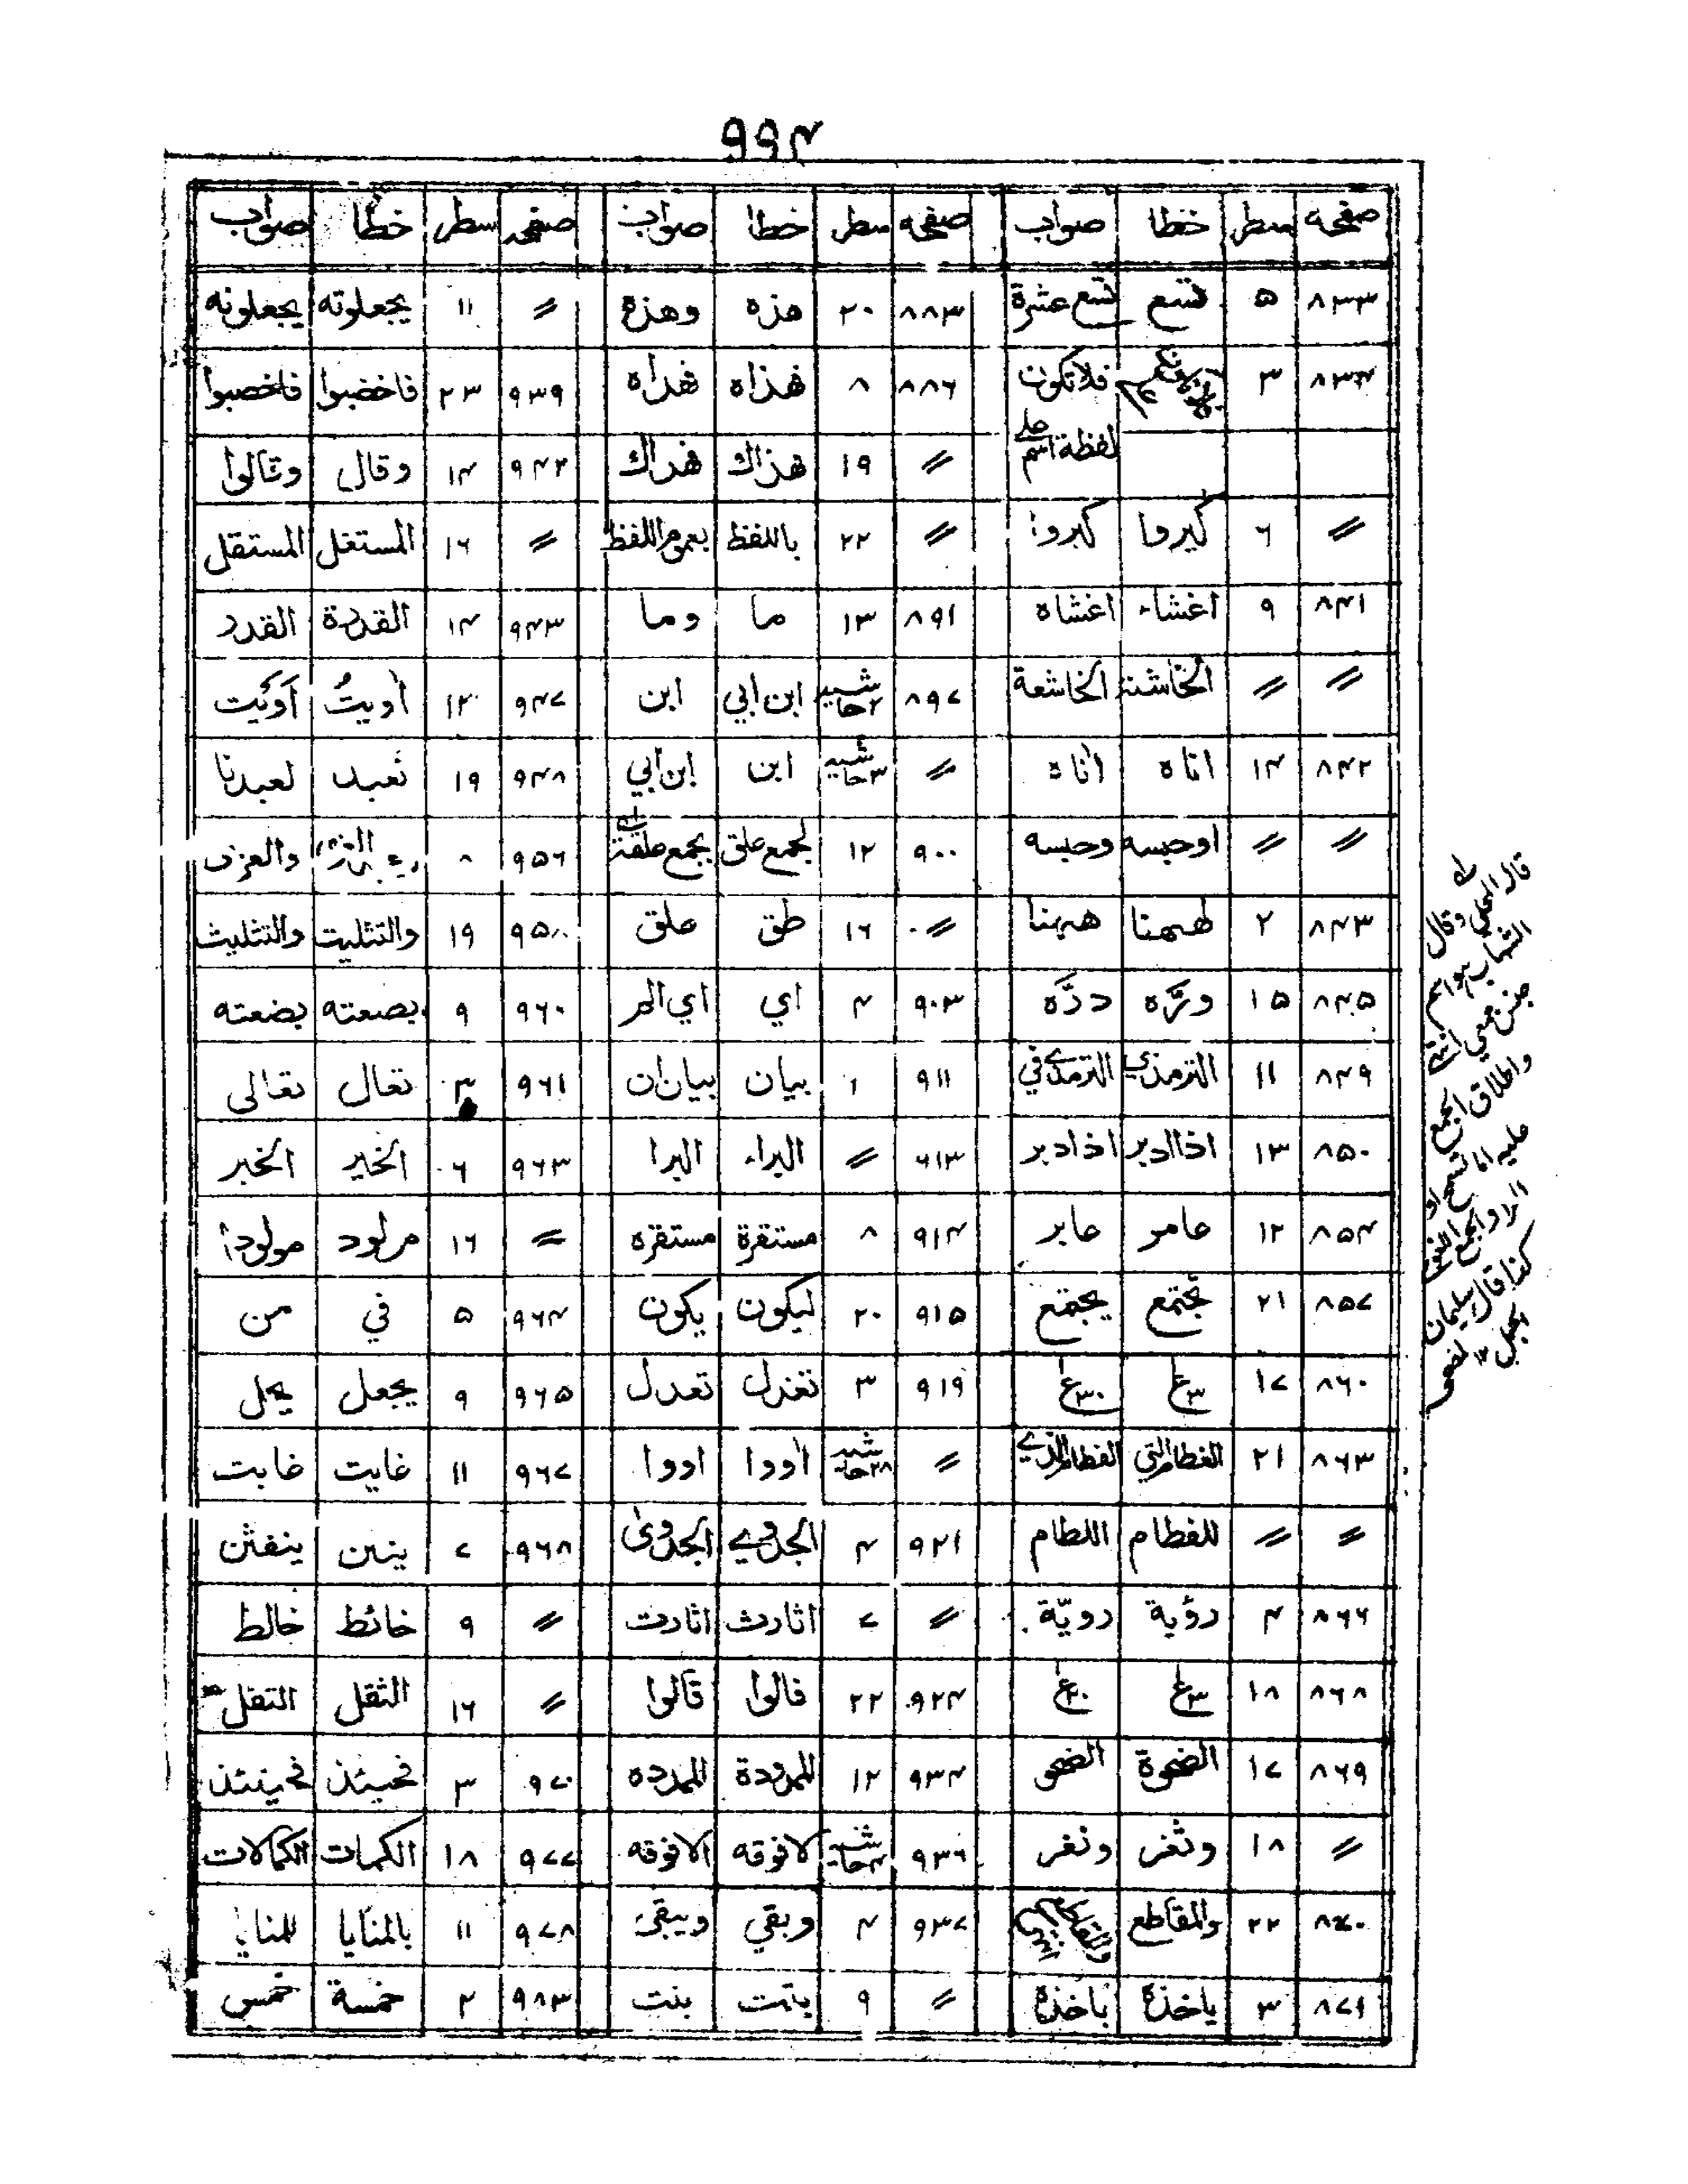 ٩٩٤
صفحه سطر خطا صواب صفحه سطر خطا صواب صفحه سطر خطا صواب
٨٣٣ ۵ تسع تسع عشرة ٨٨٣ ٢٠ هزه وهزه 〃 ١١ يجعلوته يجعلونه
٨٣٤ ٣ فلاتكون ٨٨٦ ٨ فهذاه فهداه ٩٣٩ ٢٣ فاخضبوا فاخصبوا
لفظة اسم 〃 ١٩ هذاك هداك ٩٤٢ ١٤ وقال وقالوا
〃 ٦ كيروا كبروا 〃 ٢٢ باللفظ بعموم اللفظ 〃 ١٦ المستغل المستقل
٨٤١ ٩ اغشاء اغشاه ٨٩١ ١٣ ما وما ٩٤٣ ١٤ القدرة القدر
〃 〃 الخاشنة الخاشعة ٨٩٧ حاشيه ٢ ابن ابي ابن ٩٤٧ ١٢ أويتُ أَوَيت
٨٤٢ ١٤ اناه اتاه 〃 حاشيه ٣ ابن ابن ابي ٩٤٨ ١٩ نعبد لعبدنا
〃 〃 اوحبسه وحبسه ٩٠٠ ١٢ لجمع علق بجمع علقة ٩٥٦ ٨ والعزى
٨٤٣ ٢ ههمنا ههنا 〃 ١٦ طق علق ٩۵٨ ١٩ والتثليت والتثليث
٨٤۵ ١۵ ورَّه ردَّه ٩٠٣ ٤ اي اي المر ٩٦٠ ٩ بصعته بضعته
٨٤٩ ١١ الترمذي الترمذي في ٩١١ ١ بيان بيان ان ٩٦١ ٣ تعال تعالى
٨۵٠ ١٣ اذاالدبر اذادبر ٩١٣ 〃 البراء البرا ٩٦٣ ٦ الخير الخبر
٨۵٤ ١٢ عامر عابر ٩١٤ ٨ مستقرة مستقره 〃 ١٦ مرلود مولودا
٨۵٧ ٢١ تجتمع يجتمع ٩١۵ ٢٠ ليكون يكون ٩٦٤ ۵ في من
٨٦٠ ١٧ ٩١٩ ٣ تغدل تعدل ٩٦۵ ٩ يجعل يحل
٨٦٣ ٢١ الفطام التي الفطام الذي 〃 حاشيه ٢٨ أووا اووا ٩٦٧ ١١ غايت غابت
〃 〃 للفطام اللطام ٩٢١ ٤ الجدوي الجدوى ٩٦٨ ٧ ينفثن
٨٦٦ ٤ رؤية رويّة 〃 ٧ اثارث اثارت 〃 ٩ خائط خالط
٨٦٨ ١٨ ٩٢٤ ٢٢ فالوا قالوا 〃 ١٦ الثقل التفل
٨٦٩ ١٧ الضحوة الضحى ٩٣٤ ١٢ للمدودة للممدده ٩٧٠ ٣ فحيئذ فحينئذ
〃 ١٨ وثغر ونغر ٩٣٦ حاشيه ٣ لافوقه الافوقه ٩٧٧ ١٨ الكمات الكمالات
٨٧٠ ٢٢ والمقاطع ٩٣٧ ٤ وبقي ويبقى ٩٧٨ ١١ بالمنايا للمنايا
٨٧١ ٣ ياخذه باخذه 〃 ٩ باتت بنت ٩٨٣ ٢ خمسة خمس
قال المحلي وقال
الشهاب هو اسم
جنس جمعي
واطلاق الجمع
عليه
كذا قال سليمان
الجمل